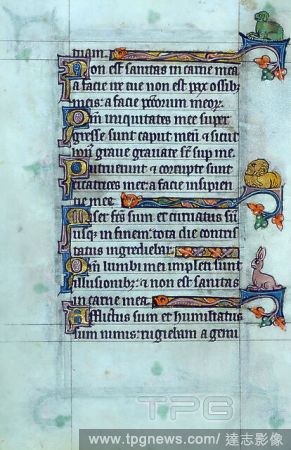 tuam.
Non est sanitas in carne mea
a facie ire tue non est pax ossib
meis: a facie pccorum meor.
Qm iniquitates mee super
gresse sunt caput meu: & sicut
hon grave gravate st sup me.
Putruerunt & corrupte sunt
cicatrices mee: a facie insipien
tie mee.
Miser fcs sum et curvatus su
usq; in finem: tota die contris
tatus ingrediebar.
Qm lumbi mei impleti sunt
illusionib;: & non est sanitas
in carne mea.
Afflictus sum et humiliatus
sum nimis: rugiebam a gemi
TPG
www.tpgnews.com / 達志影像